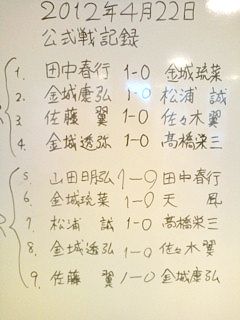 2012年4月22日
公式戦記録
1. 田中春行 1-0 金城琉菜
2. 金城康弘 1-0 松浦 誠
3. 佐藤 翼 1-0 佐々木翼
4. 金城透弥 1-0 高橋栄三
5. 山田明弘 1-0 田中春行
6. 金城琉菜 1-0 天 風
7. 松浦 誠 1-0 高橋栄三
8. 金城透弘 1-0 佐々木翼
9. 佐藤 翼 1-0 金城康弘